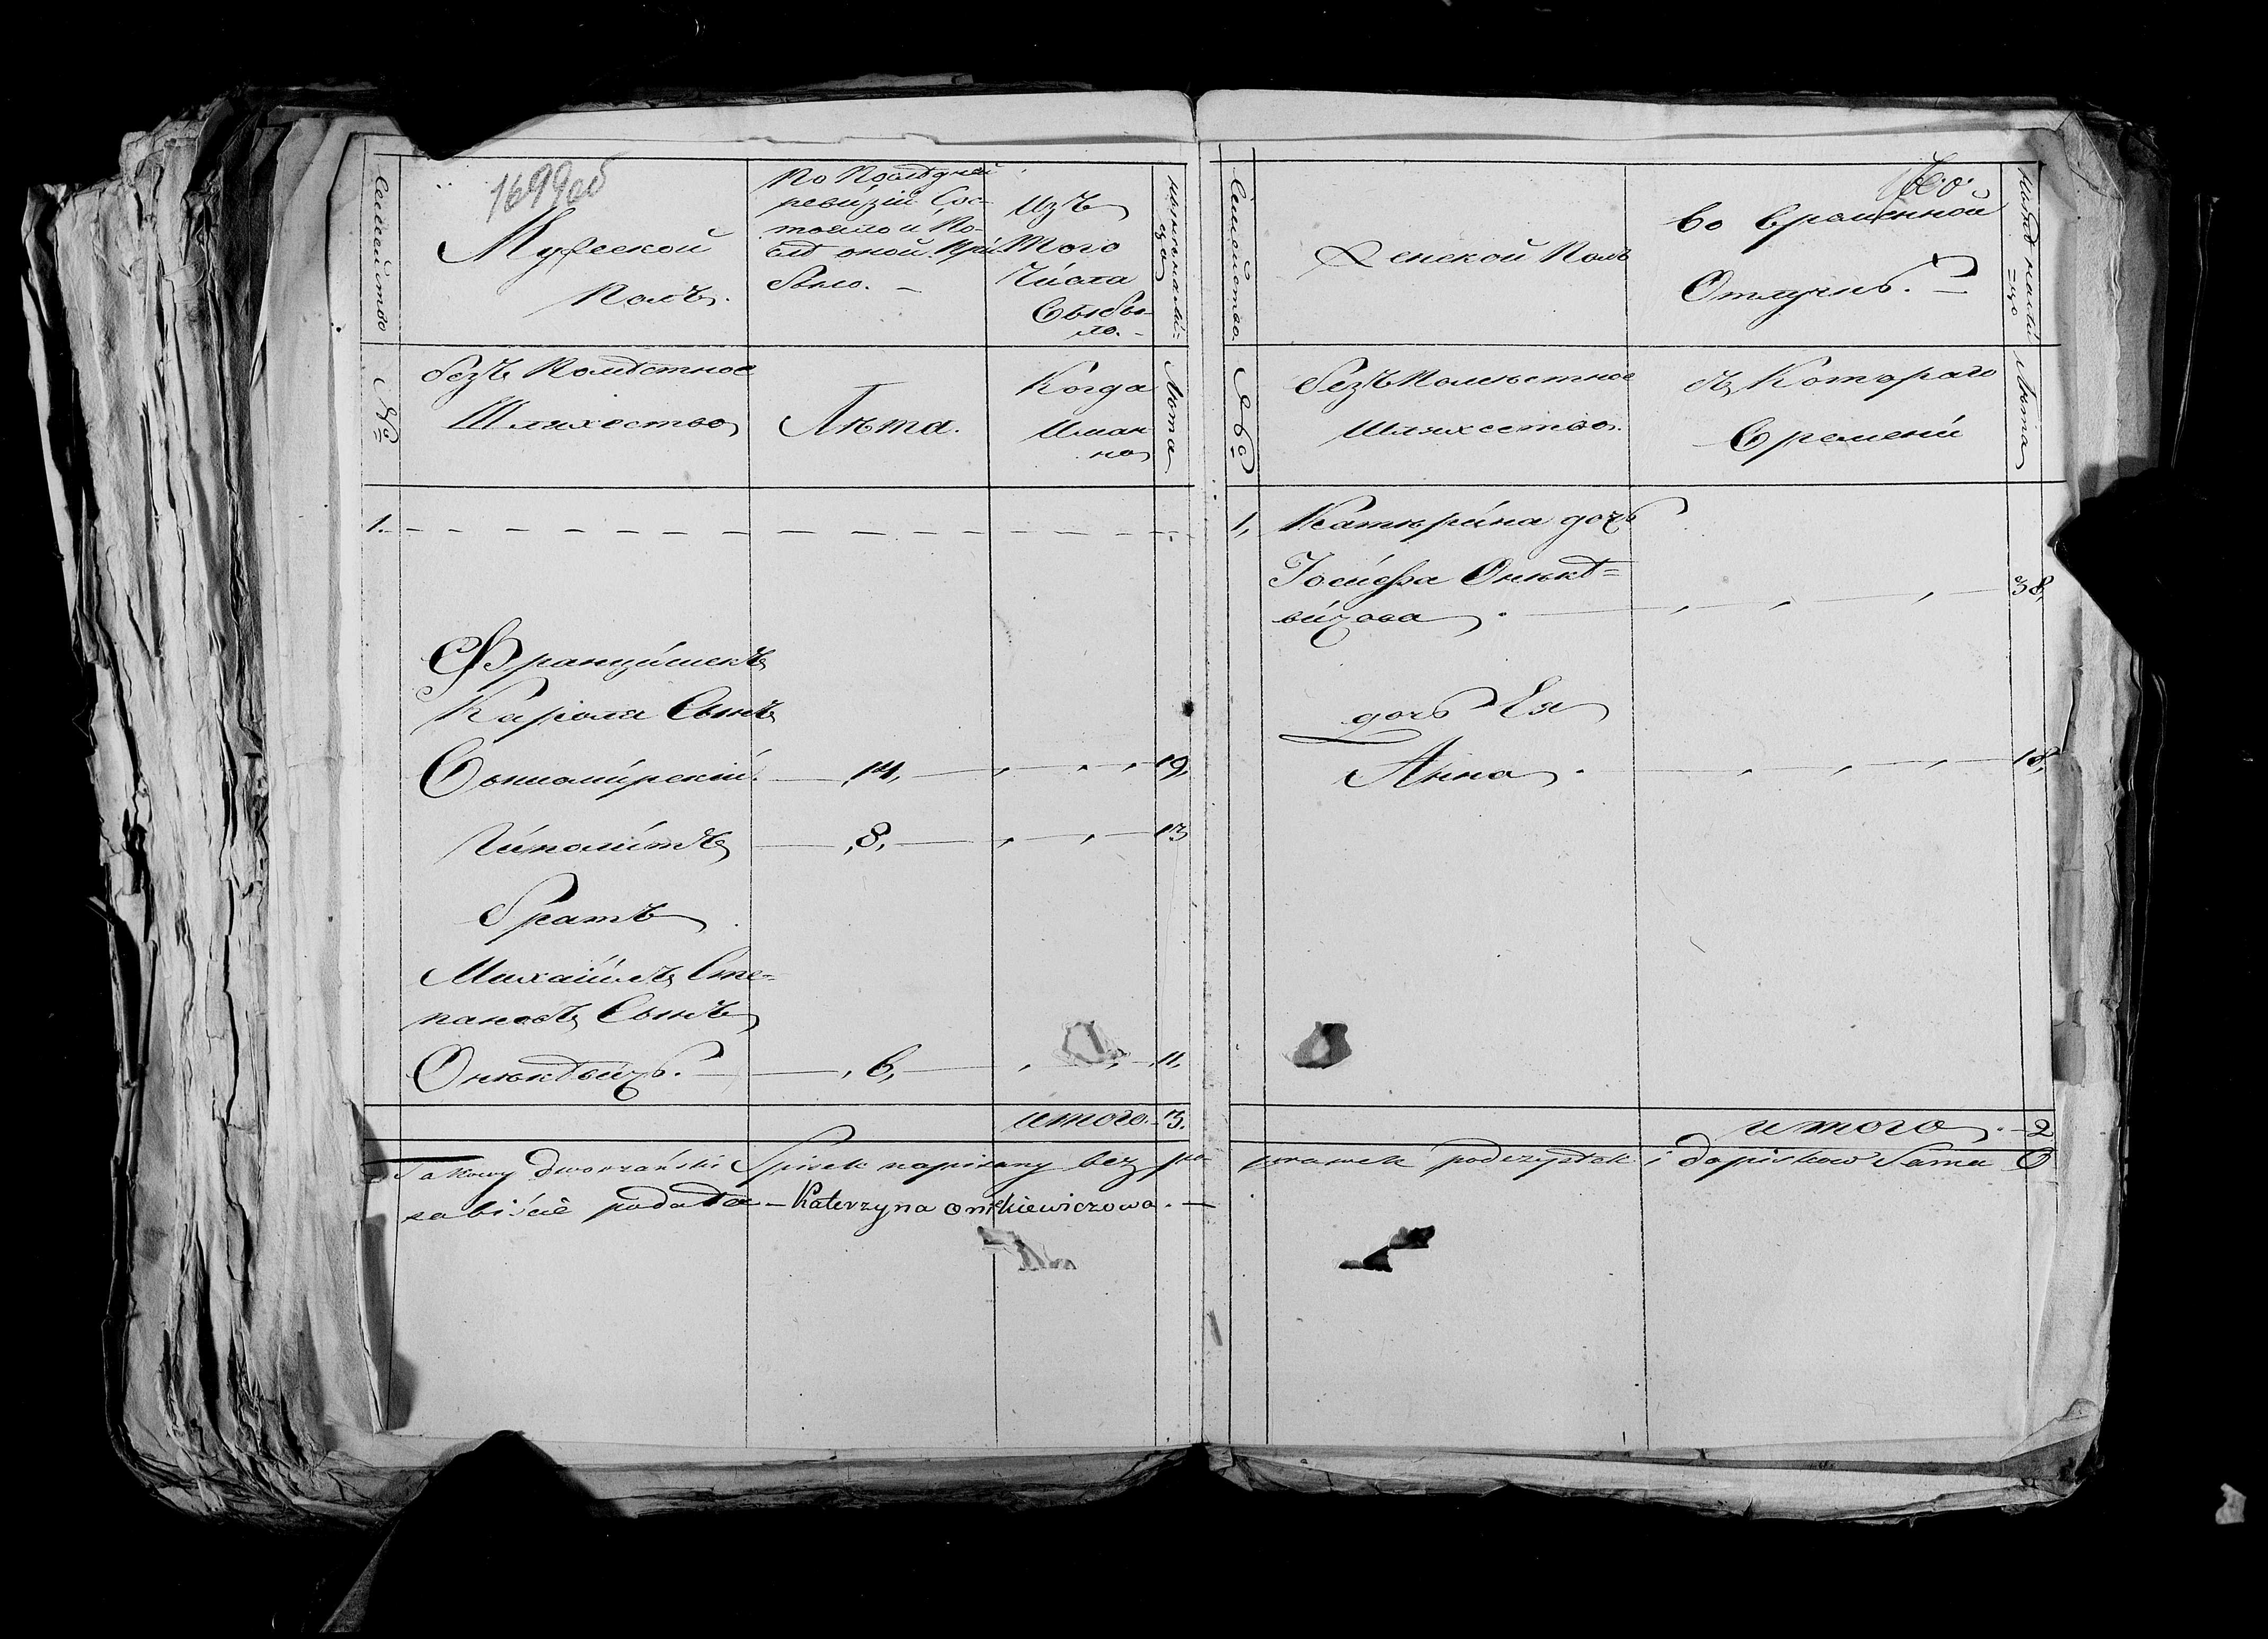 Семейство
1699об
Мужеской
Полъ.
По Последней
ревизіи Сос-
тояло и По-
слѣ оной При
было. —
Изъ
Того
Числа
Выбы-
ло. —
ныне на ли=
цо
№
безъ Поместное
Шляхество
Лѣта.
Когда
Имян
но
Лѣта
1.
Францишекъ
Кароля Сынъ
14, 19,
Ииполитъ 8, 13
братъ
Михаилъ Сте=
пановъ Сынъ
Онькѣвичъ. 6, 11,
итого. 3.
Семейство.
Женской Полъ
Во временной
Отлучкѣ. —
=цо
№
безъ Поместное
Шляхество.
съ Котораго
Времени
Лѣта
1, Катерина дочь
Іосифа Онькѣ=
вичова 38,
дочь Ея
Анна 18,
итого. 2
Takowy Dworzański Spisek napisany bez po prawek podczystek i dopiskow Sama O
sabiście podała — Katerzyna Onkiewiczowa. —